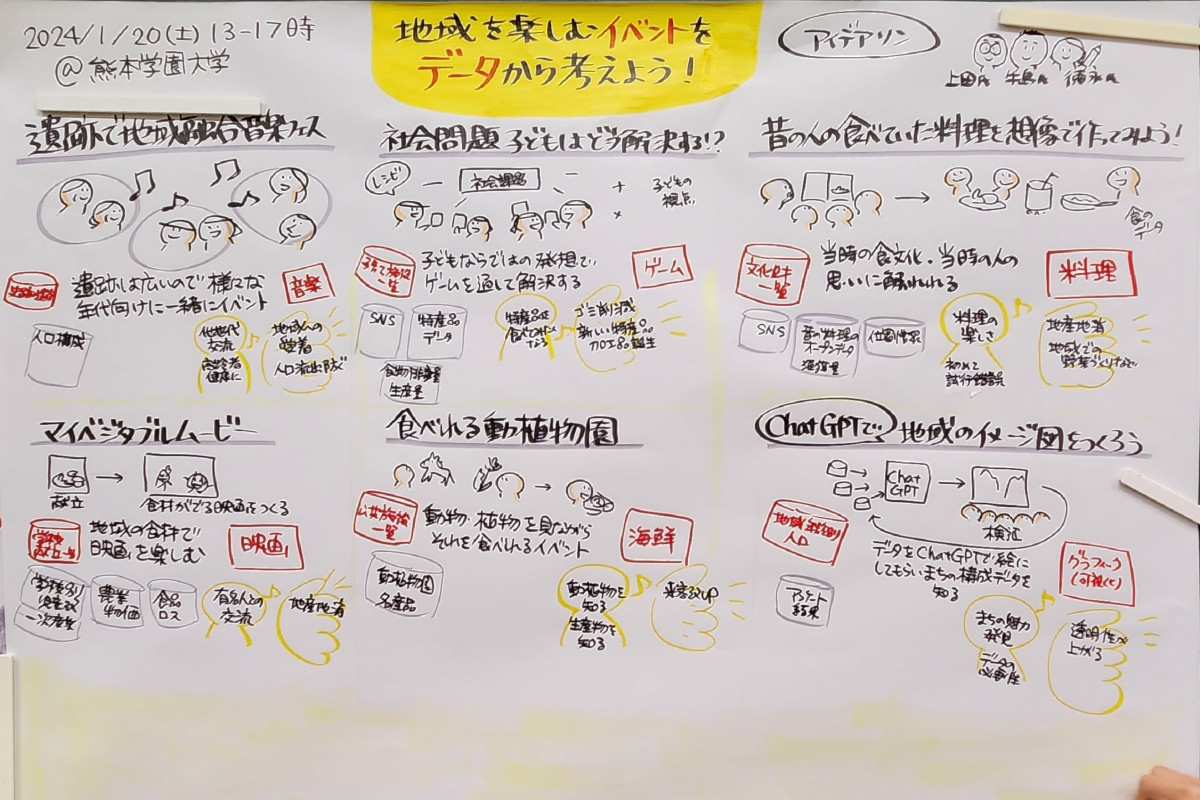 2024/1/20(土) 13-17時
@熊本学園大学
地域を楽しむイベントを
データから考えよう!
アイデアソン
上田さん 牛島さん 徳永さん
遺跡で地域融合音楽フェス
遺跡は広いので様々な
年代向けに一緒にイベント
音楽
人口構成
他世代
交流
高齢者
健康に
地域への
愛着
人口流出防ぐ
社会問題 子どもはどう解決する!?
レシピ!
社会課題
+
×
子どもの
視点
子どもならではの発想で、
ゲームを通して解決する
ゲーム
SNS
特産品
データ
食物消費量
生産量
特産品を
食べてみたく
なる
ゴミ削減
新しい特産品
加工品誕生
昔の人の食べていた料理を想像で作ってみよう!
食の
データ
文化財
一覧
当時の食文化・当時の人の
思いに触れられる
料理
SNS
昔の料理の
オープンデータ
位置情報
料理の
楽しさ
初めて
試行錯誤
地産地消
地域での
野菜づくりなど
マイベジタブルムービー
献立
食材がでる映画をつくる
地域の食材で
映画を楽しむ
映画
農業
物価
食品
ロス
有名人との
交流
地産地消
食べれる動植物園
公共施設
一覧
動物・植物を見ながら
それを食べれるイベント
海鮮
動植物園
名産品
動植物を
知る
生産物を
知る
来客数UP
ChatGPTで地域のイメージ図をつくろう
Chat
GPT
検証
人口
データをChatGPTで絵に
してもらいまちの構成データを
知る
グラフィック
(可視化)
アンケート
結果
まちの魅力
発見
データの
必要性
透明性が
上がる